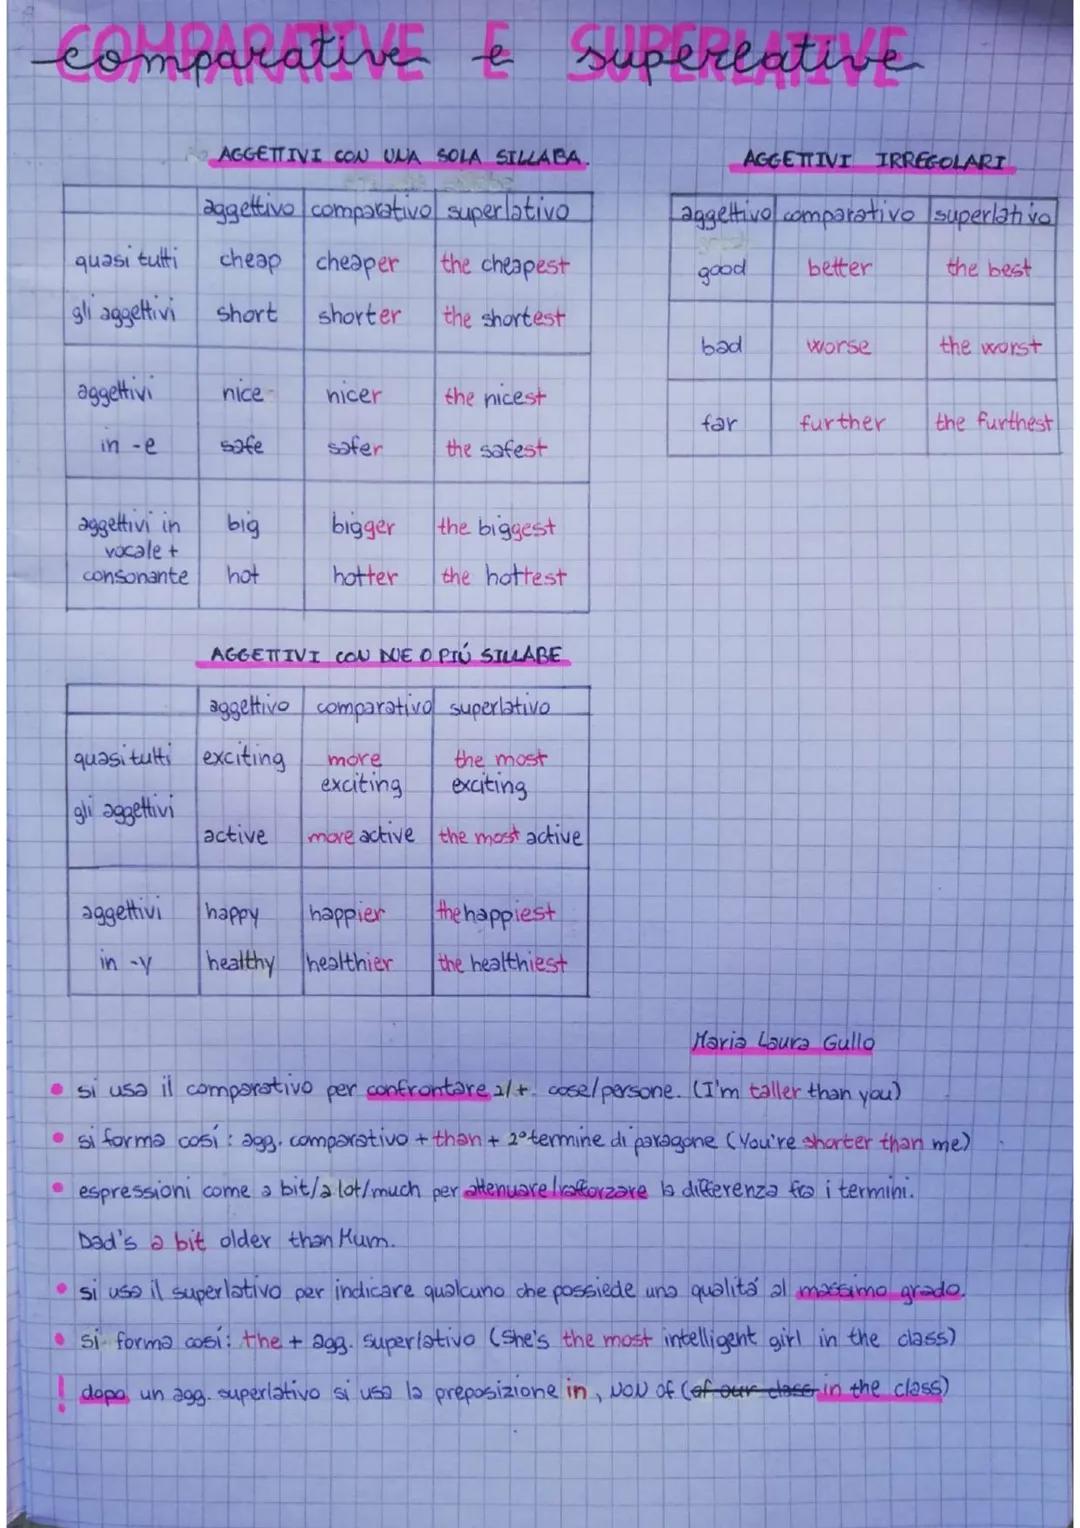 COMPARATIVE E SUPERLATIVE
comparative e superlative
AGGETTIVI CON UNA SOLA SILLABA.
aggettivo comparativo superlativo
quasi tutti cheap cheaper the cheapest
gli aggettivi short shorter the shortest
aggettivi nice nicer the nicest
in -e safe safer the safest
aggettivi in big bigger the biggest
vocale +
consonante hot hotter the hottest
AGGETTIVI IRREGOLARI
aggettivo comparativo superlativo
good better the best
bad worse the worst
far further the furthest
AGGETTIVI CON DUE O PIÚ SILLABE
aggettivo comparativo superlativo
quasi tutti exciting more the most
exciting exciting
gli aggettivi
active more active the most active
aggettivi happy happier the happiest
in -y healthy healthier the healthiest
Maria Laura Gullo
• si usa il comparativo per confrontare 2/+ cose/persone. (I'm taller than you)
• si forma cosí: agg. comparativo + than + 2° termine di paragone (You're shorter than me)
• espressioni come a bit/a lot/much per attenuare/rafforzare la differenza fra i termini.
Dad's a bit older than Mum.
• si usa il superlativo per indicare qualcuno che possiede una qualitá al massimo grado.
• si forma cosí: the + agg. superlativo (She's the most intelligent girl in the class)
! dopo un agg. superlativo si usa la preposizione in, NON of (of our class in the class)